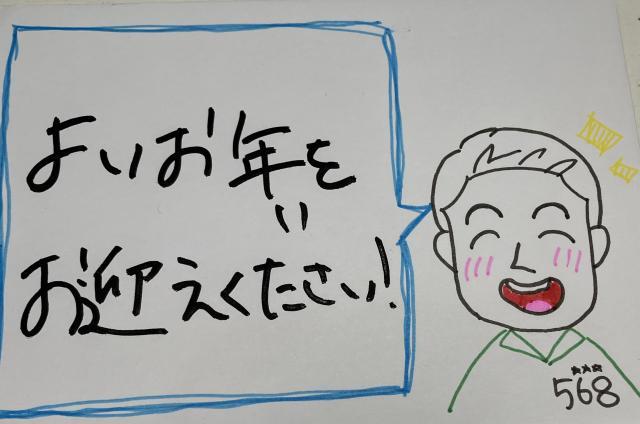 よいお年を
お迎えください!
★★★
568